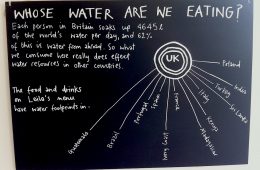 WHOSE WATER ARE WE EATING?
Each person in Britain soaks up 4645 l
of the world's water per day, and 62%
of this is water from abroad. So what
we consume here really does effect
water resources in other countries.
The food and drinks
on Leila's menu
have water footprints in..
UK
Guatemala
Brazil
Portugal
Spain
Ivory Coast
France
Madagascar
Italy
Kenya
Turkey
Sri Lanka
India
Poland